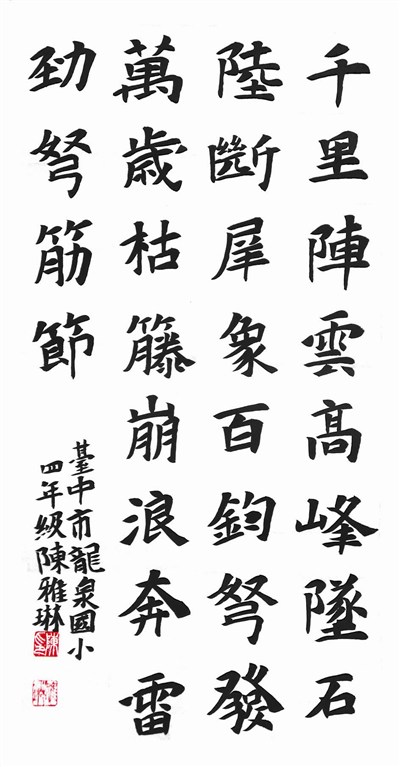 千里陣雲高峰墜石
陸斷犀象百鈞弩發
萬歲枯籐崩浪奔雷
勁弩筋節
臺中市龍泉國小
四年級陳雅琳